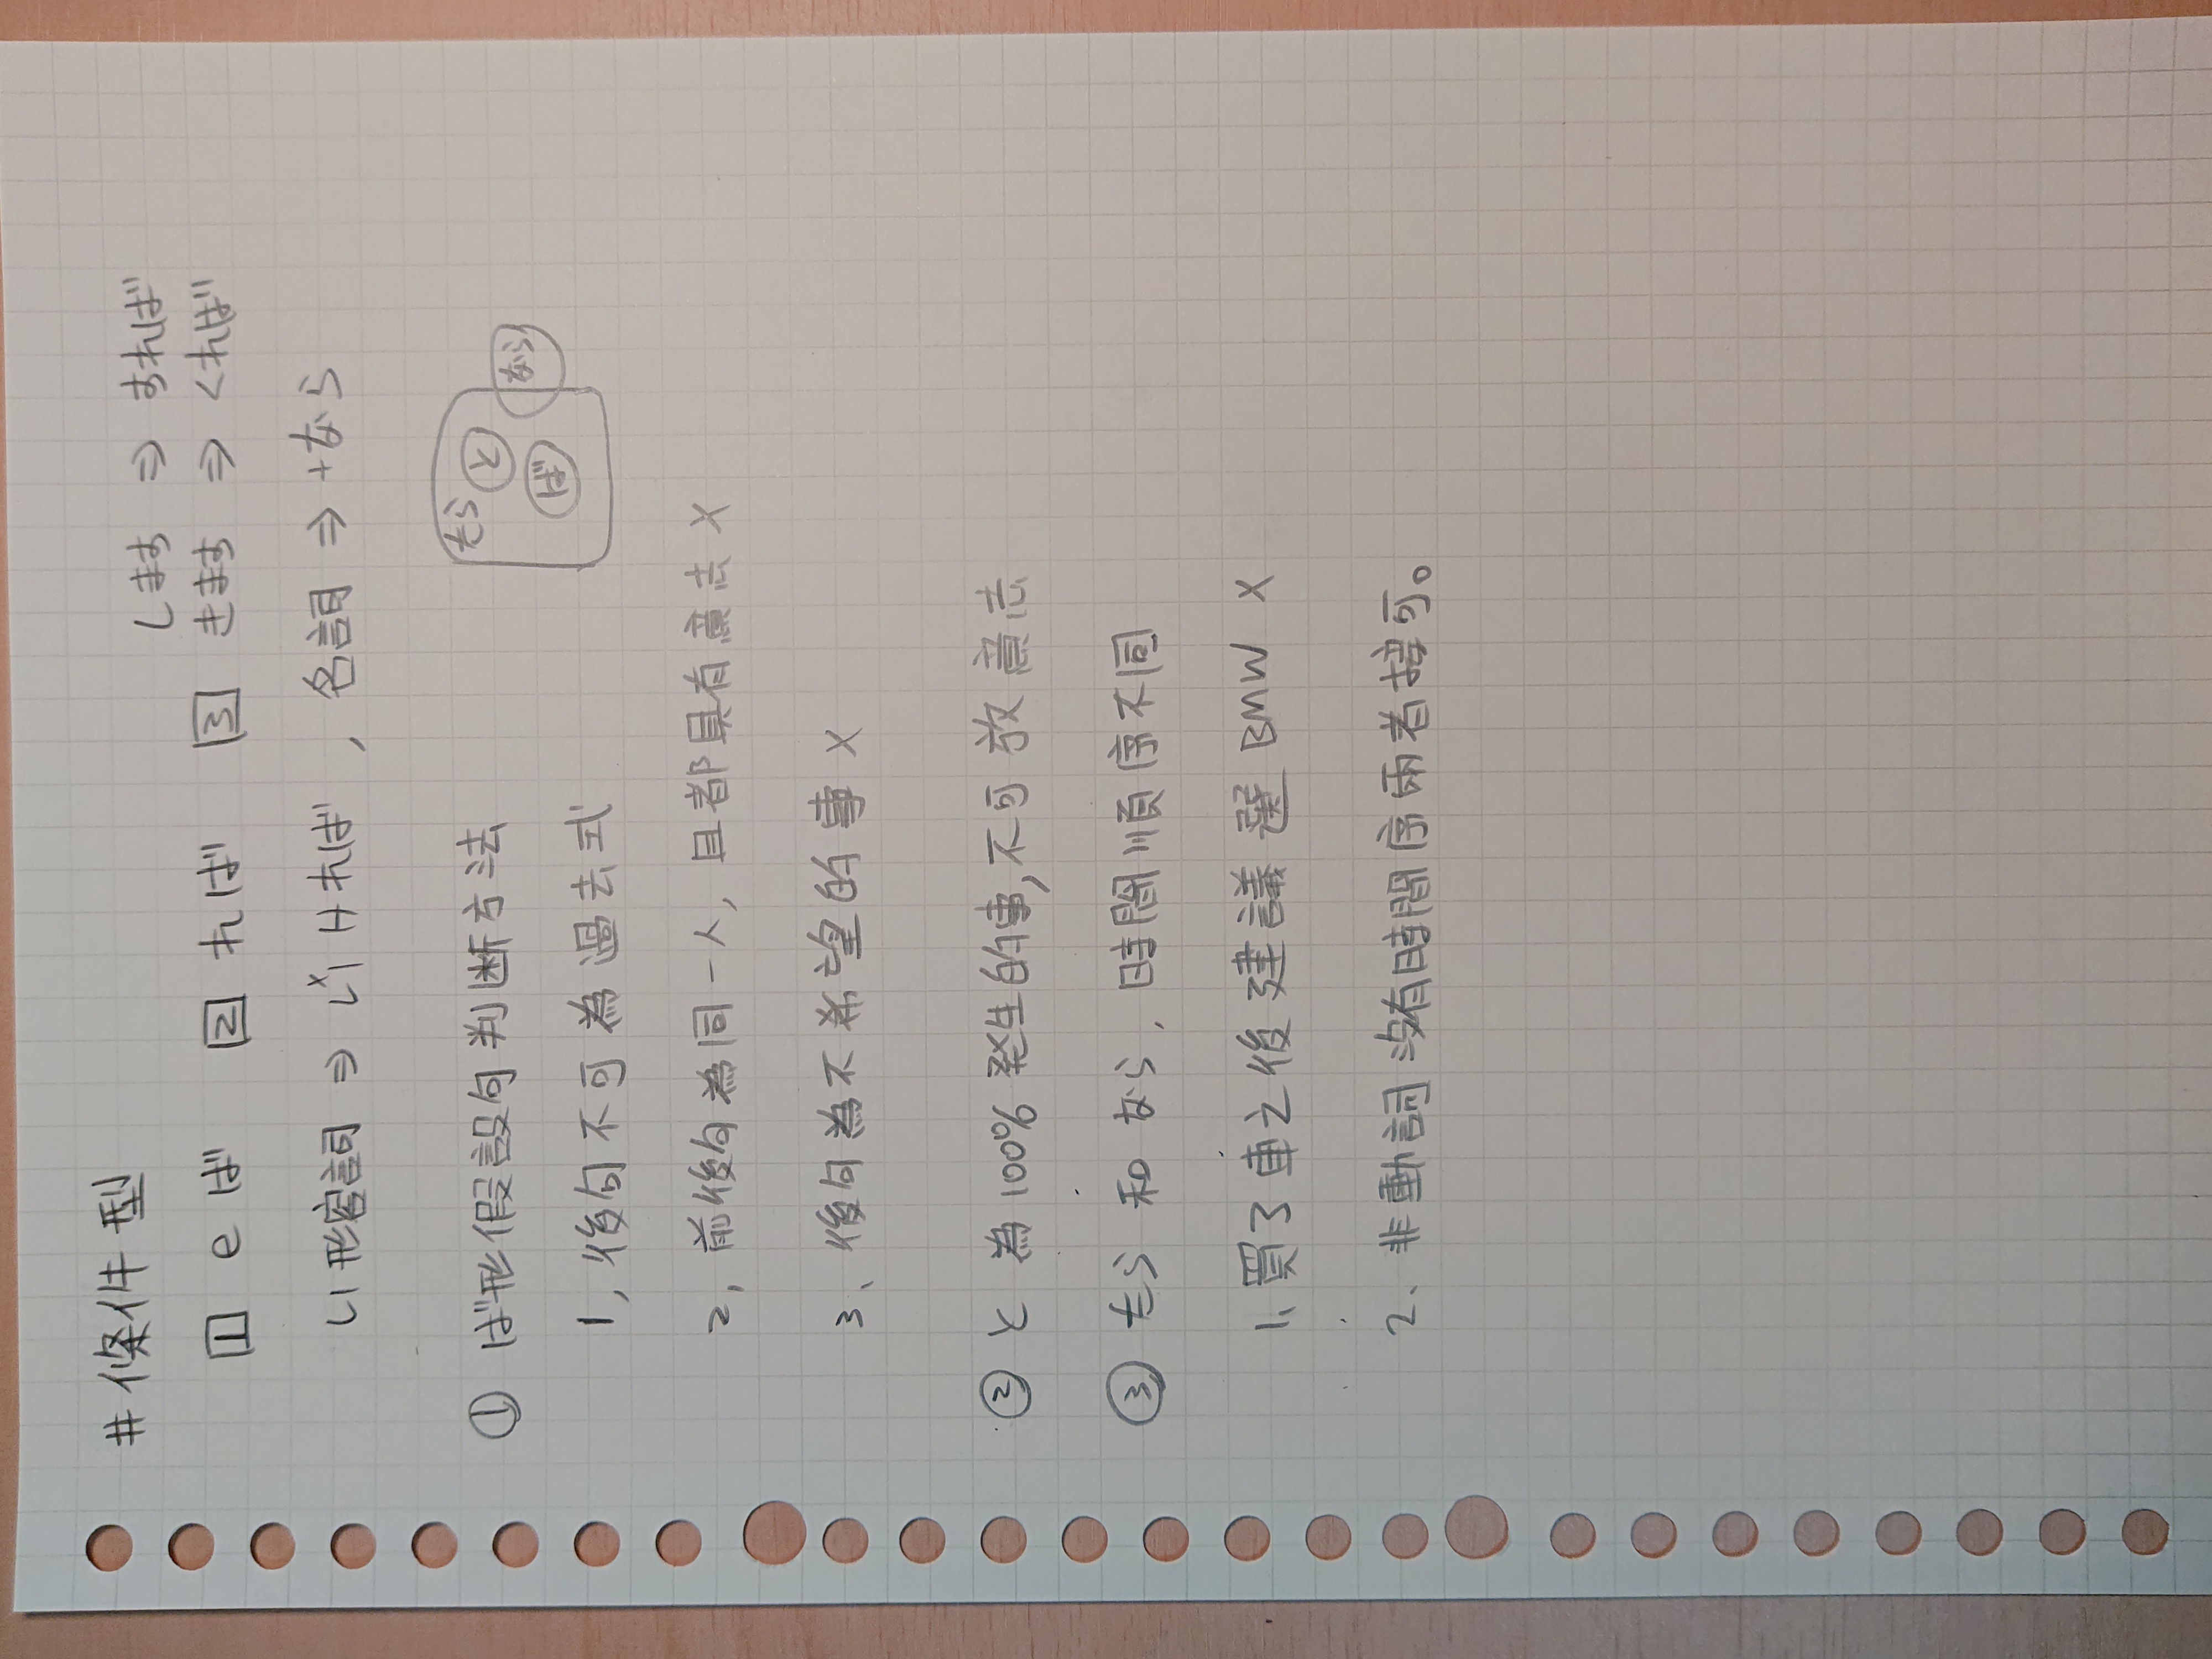 # 條件型
します ⇒ すれば
1 e ば 2 れば 3 きます ⇒ くれば
い形容詞 ⇒ い ければ , 名詞 ⇒ +なら
① ば形假設句判斷方法
たら と ば なら
1, 後句不可為過去式
2, 前後句為同一人, 且都具有意志 X
3、後句為不希望的事 X
② と 為100%發生的事,不可放意志
③ たら 和 なら, 時間順序不同
1、買了車之後建議選 BMW X
2、非動詞沒有時間序兩者接可。